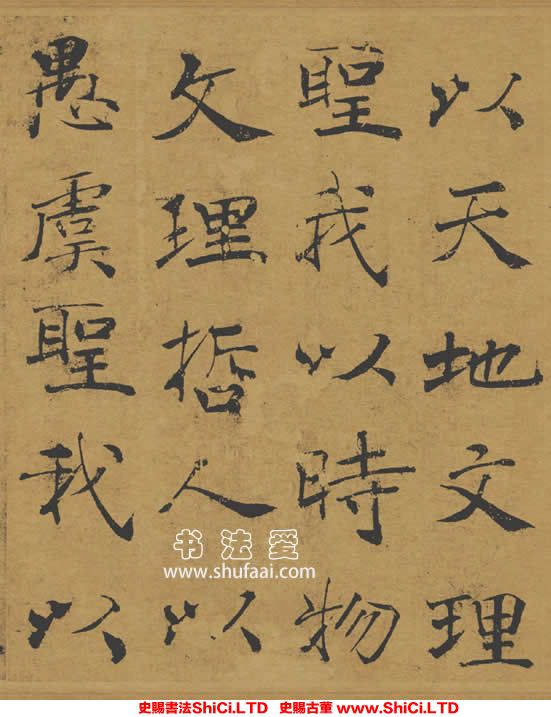 以天地文理
聖我以時物
文理哲人以
愚虞聖我以
书法爱
www.shufaai.com
史賜書法ShiCi.LTD 史賜古董 www.ShiCi.LTD